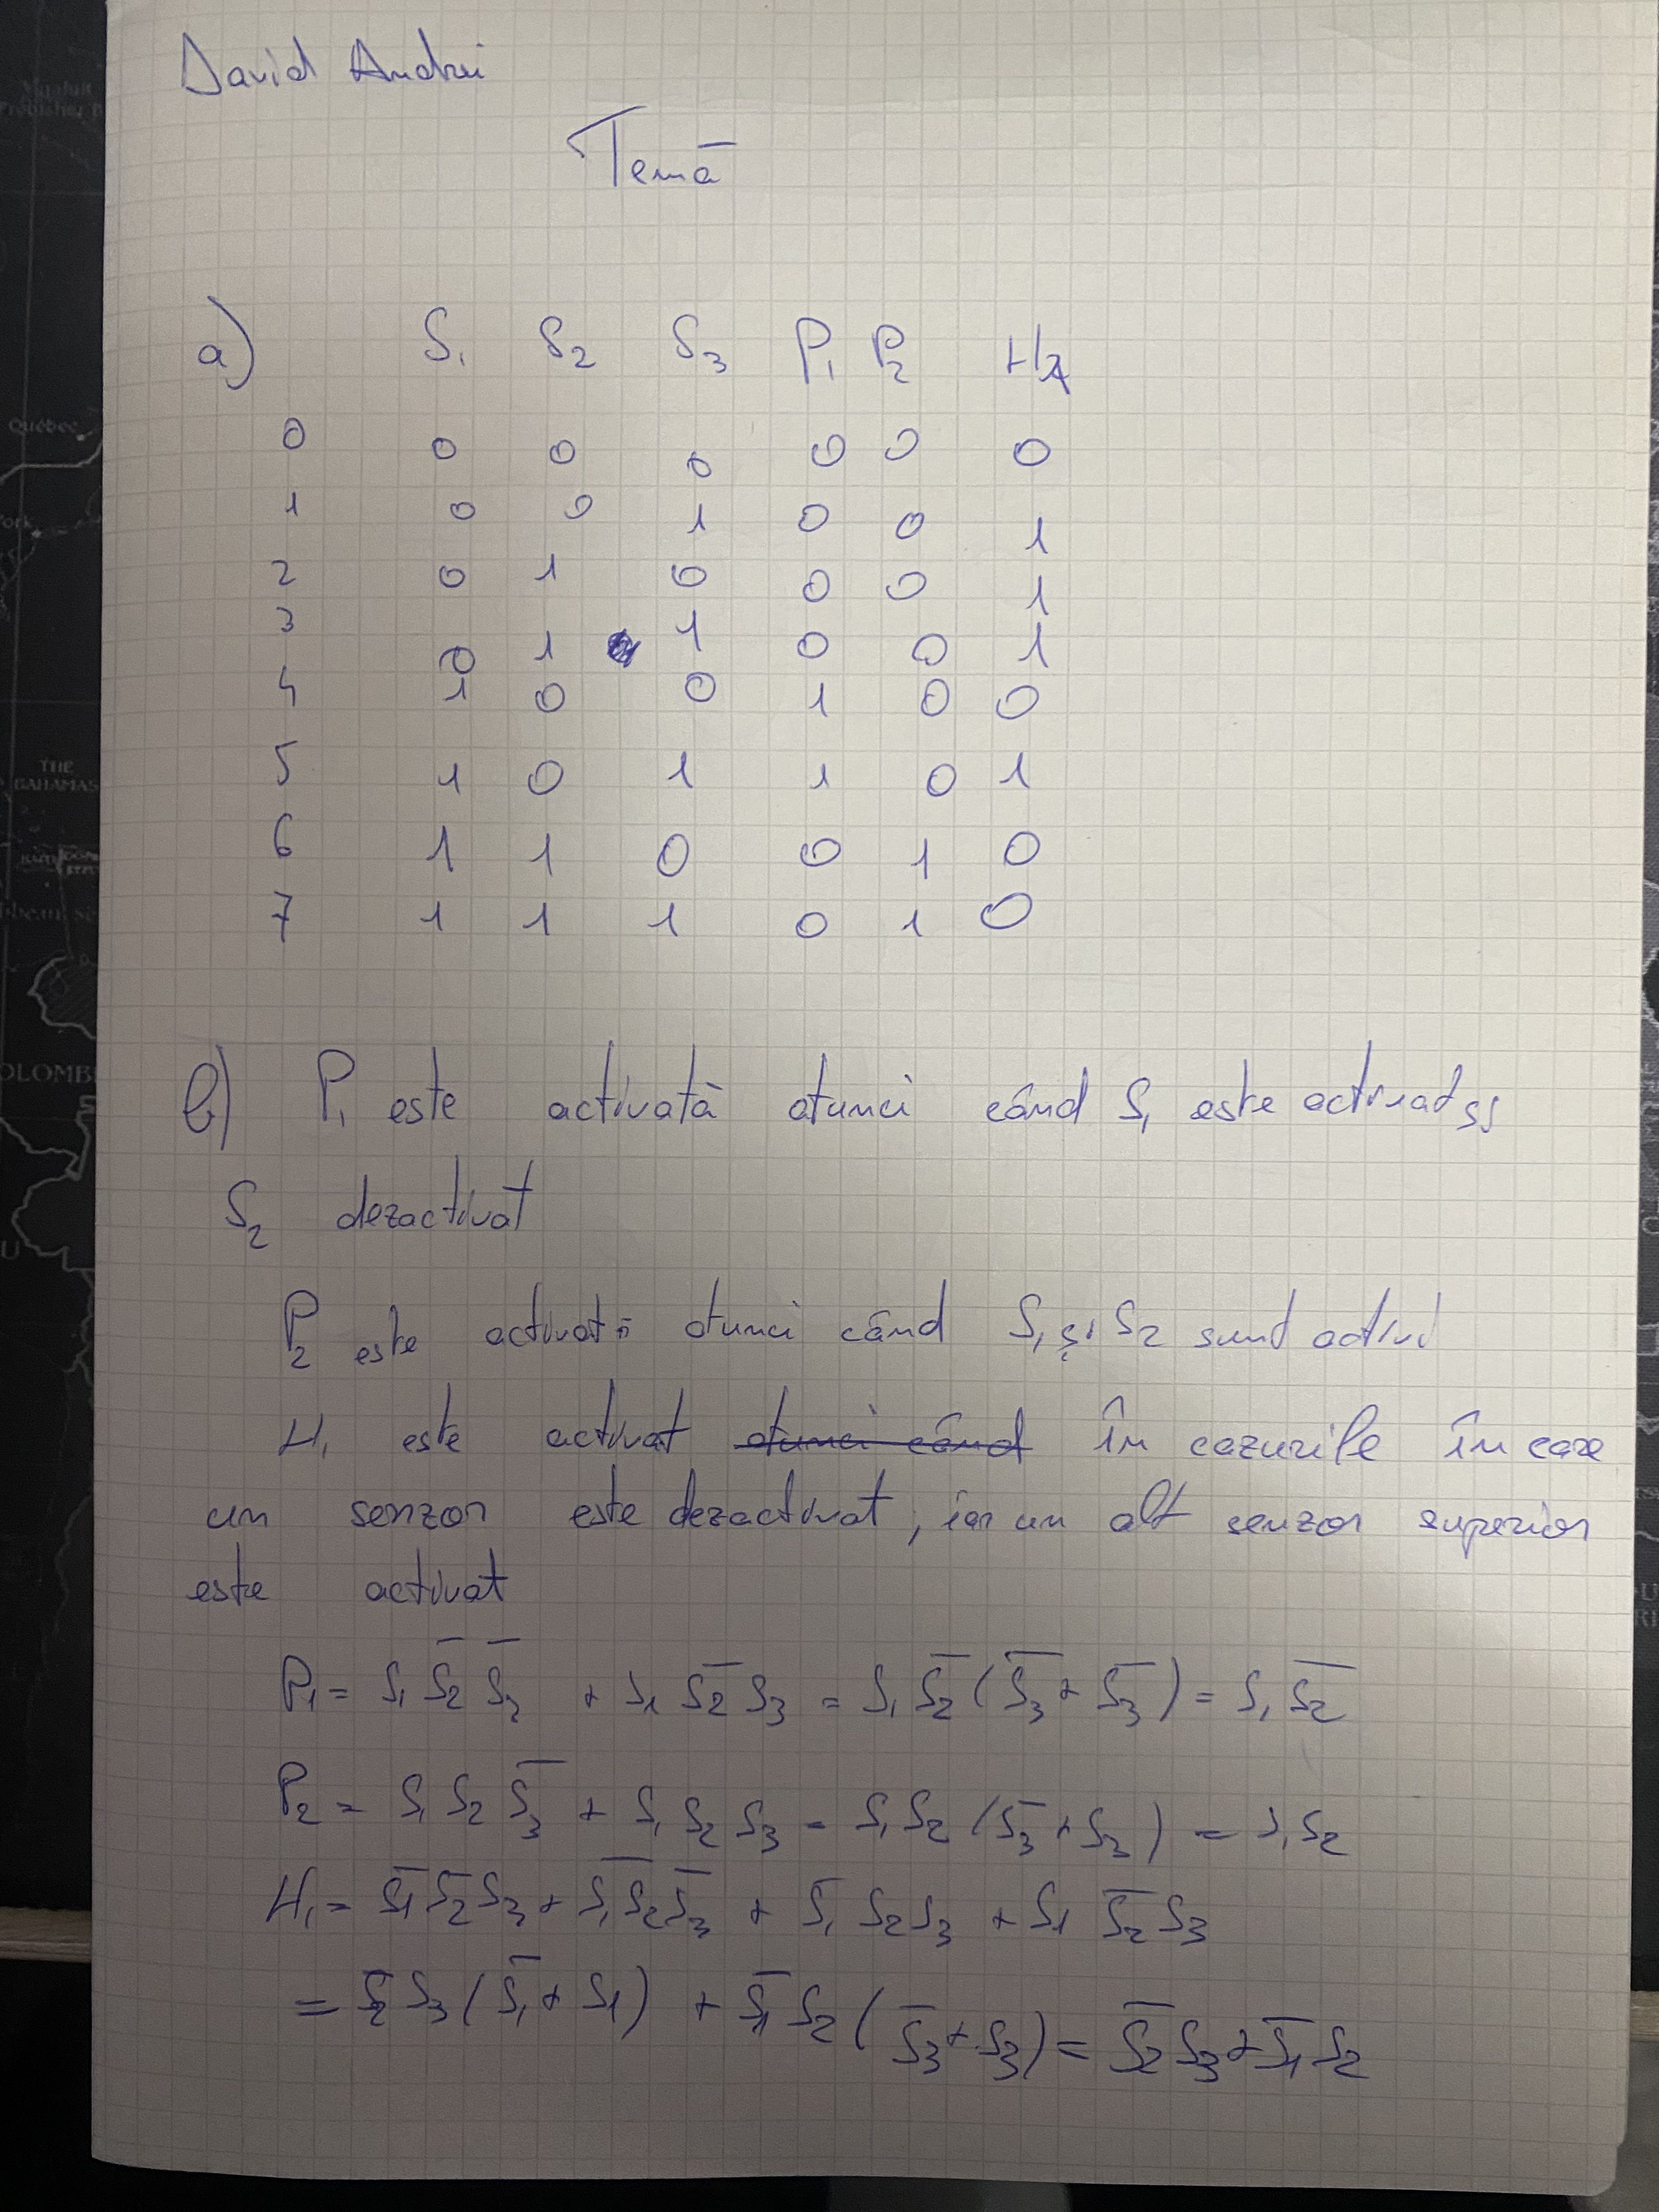 David Andrei
Temă
a) S₁ S₂ S₃ P₁ P₂ H₁
0 0 0 0 0 0 0
1 0 0 1 0 0 1
2 0 1 0 0 0 1
3 0 1 1 0 0 1
4 1 0 0 1 0 0
5 1 0 1 1 0 1
6 1 1 0 0 1 0
7 1 1 1 0 1 0
b) P₁ este activată atunci când S₁ este activat și
S₂ dezactivat
P₂ este activată atunci când S₁ și S₂ sunt activi
H₁ este activat ~~atunci când~~ în cazurile în care
un senzor este dezactivat, iar un alt senzor superior
este activat
P₁ = S₁ S̅₂ S̅₃ + S₁ S̅₂ S₃ = S₁ S̅₂ (S̅₃ + S̅₃) = S₁ S̅₂
P₂ = S₁ S₂ S̅₃ + S₁ S₂ S₃ = S₁ S₂ (S̅₃ + S₃) = S₁ S₂
H₁ = S̅₁ S̅₂ S₃ + S̅₁ S₂ S̅₃ + S̅₁ S₂ S₃ + S₁ S̅₂ S₃
= S̅₂ S₃ (S̅₁ + S₁) + S̅₁ S₂ (S̅₃ + S₃) = S̅₂ S₃ + S̅₁ S₂
THE
BAHAMAS
Québec